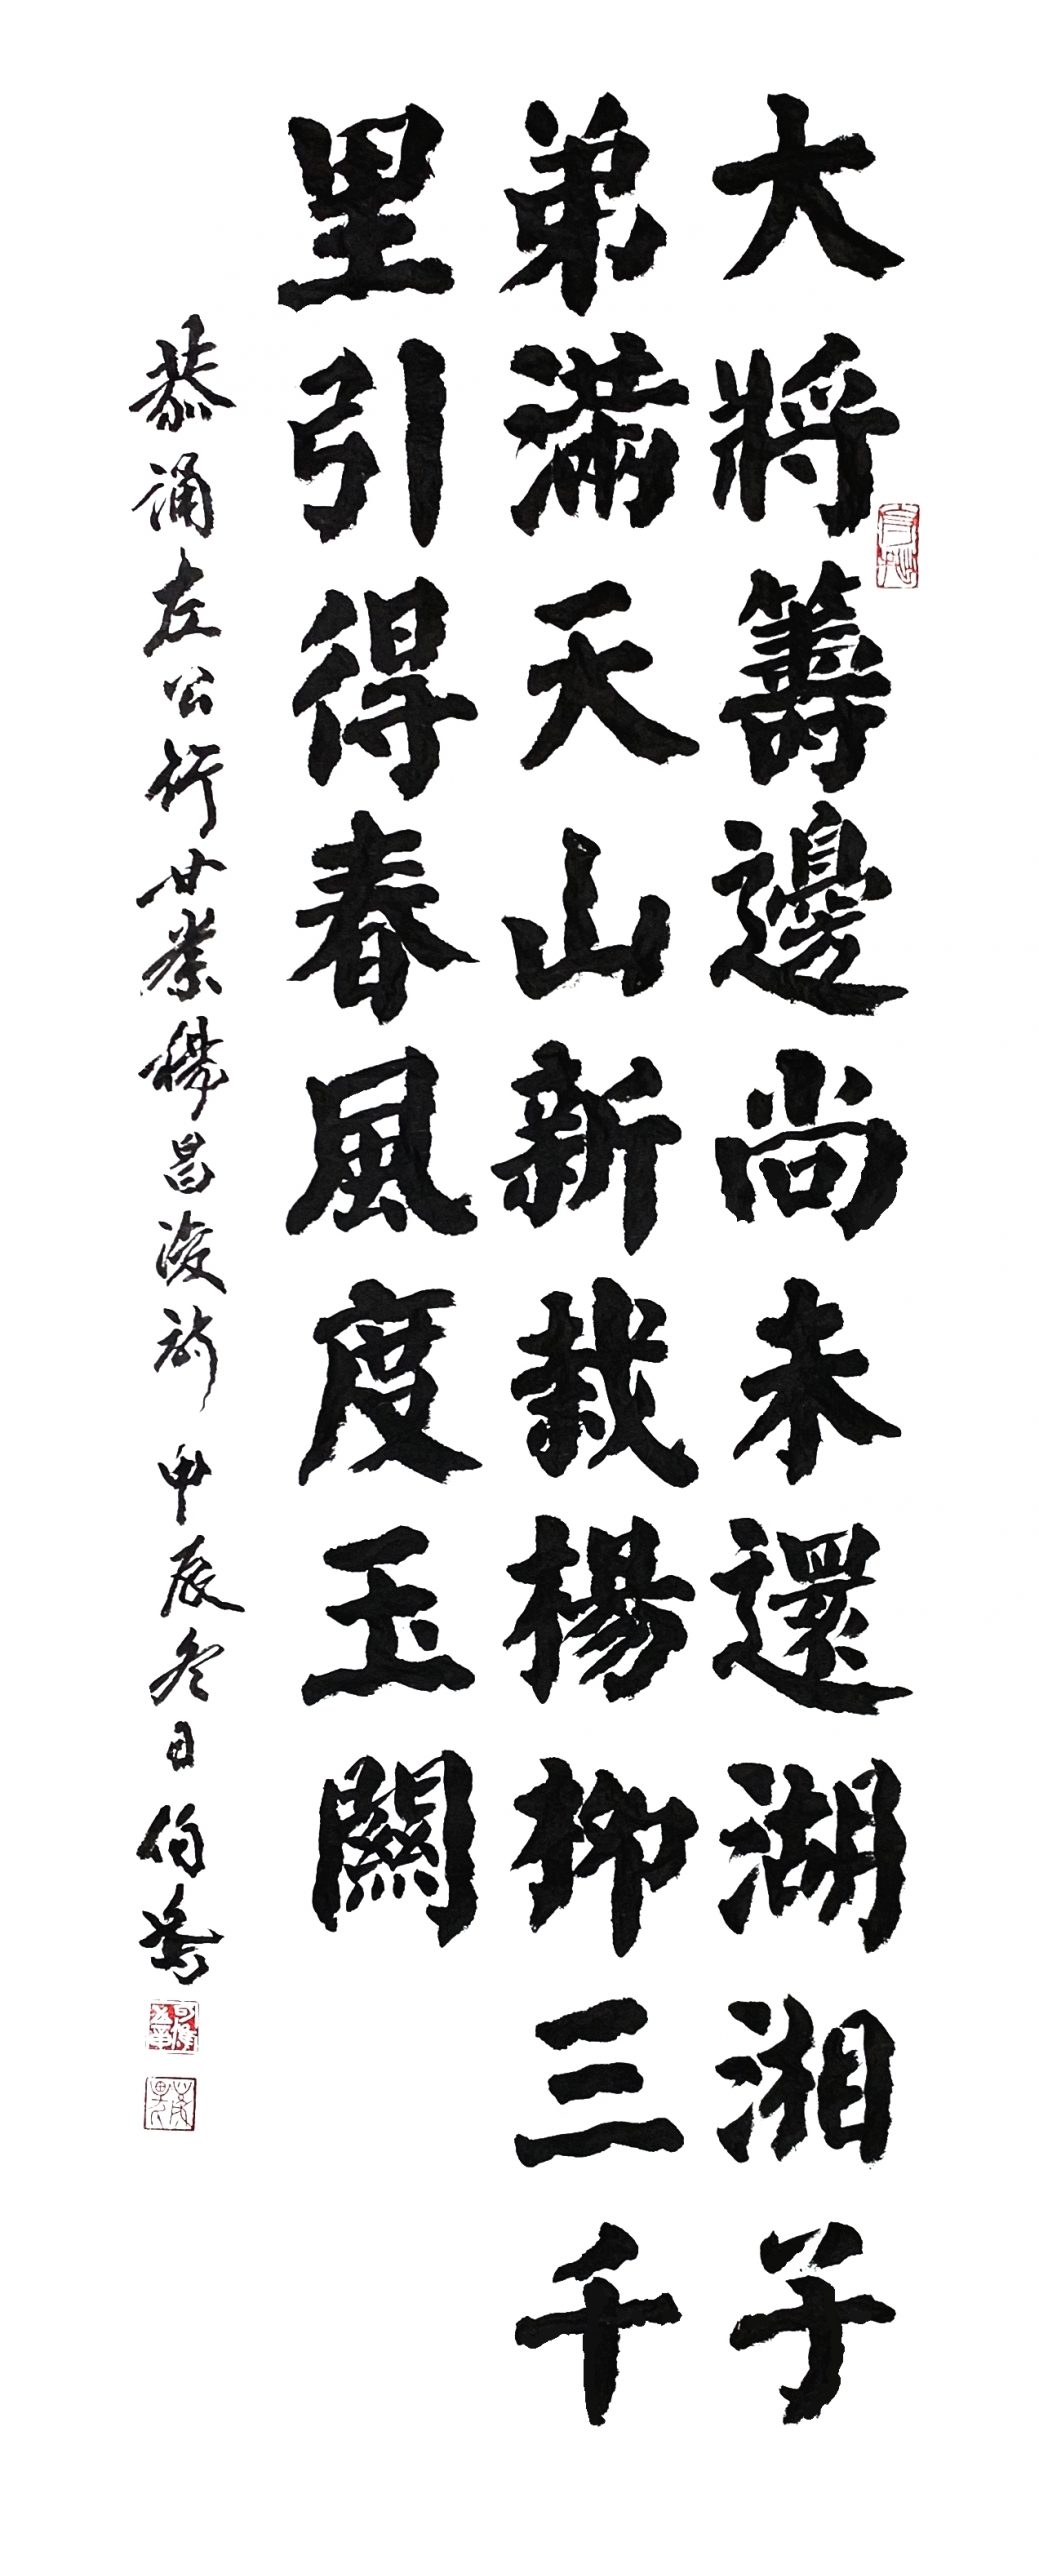 大將籌邊尚未還湖湘子
弟滿天山新栽楊柳三千
里引得春風度玉關
恭誦左公行甘棠楊昌浚詩 甲辰冬日伯